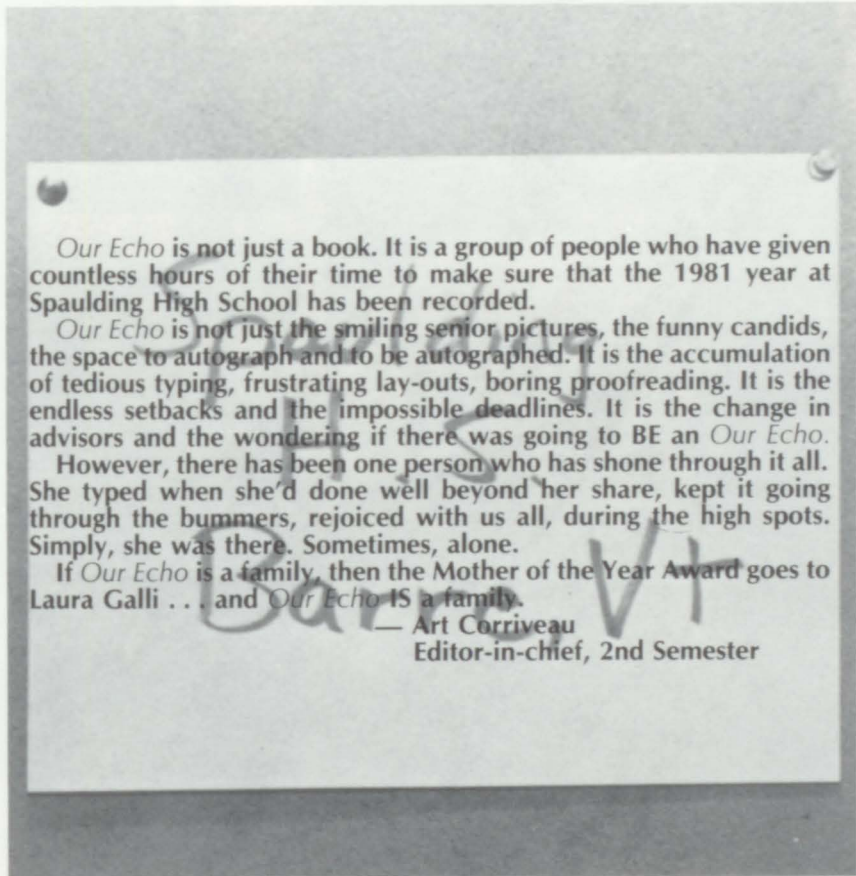 Our Echo is not just a book. It is a group of people who have given
countless hours of their time to make sure that the 1981 year at
Spaulding High School has been recorded.
Our Echo is not just the smiling senior pictures, the funny candids,
the space to autograph and to be autographed. It is the accumulation
of tedious typing, frustrating lay-outs, boring proofreading. It is the
endless setbacks and the impossible deadlines. It is the change in
advisors and the wondering if there was going to BE an Our Echo.
However, there has been one person who has shone through it all.
She typed when she'd done well beyond her share, kept it going
through the bummers, rejoiced with us all, during the high spots.
Simply, she was there. Sometimes, alone.
If Our Echo is a family, then the Mother of the Year Award goes to
Laura Galli . . . and Our Echo IS a family.
— Art Corriveau
Editor-in-chief, 2nd Semester
Spaulding
H.S.
Barre, Vt